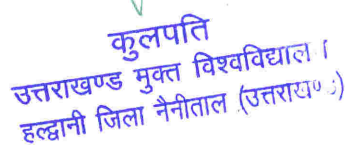 कुलपति
उत्तराखण्ड मुक्त विश्वविद्याल
हल्द्वानी जिला नैनीताल